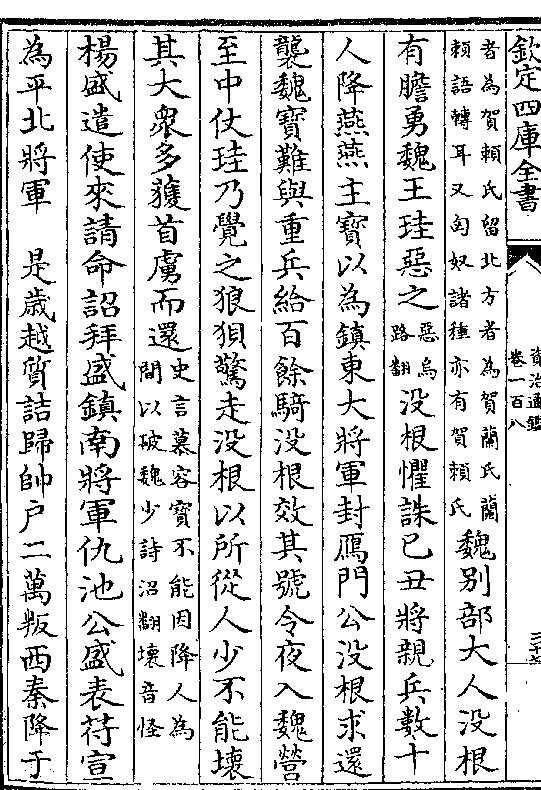 欽定四庫全書
資治通鑑
卷一百八
者為賀頼氏留北方者為賀蘭氏蘭
頼語轉耳又匈奴諸種亦有賀頼氏
魏别部大人没根
有膽勇魏王珪惡之
惡烏
路翻
没根懼誅已丑將親兵數十
人降燕燕主寶以為鎮東大將軍封鴈門公没根求還
襲魏寶難與重兵給百餘騎没根效其號令夜入魏營
至中仗珪乃覺之狼狽驚走没根以所從人少不能壞
其大衆多獲首虜而還
史言慕容寳不能因降人為
間以破魏少詩沼翻壞音怪
楊盛遣使來請命詔拜盛鎮南將軍仇池公盛表苻宣
為平北將軍　是歳越質詰歸帥户二萬叛西秦降于